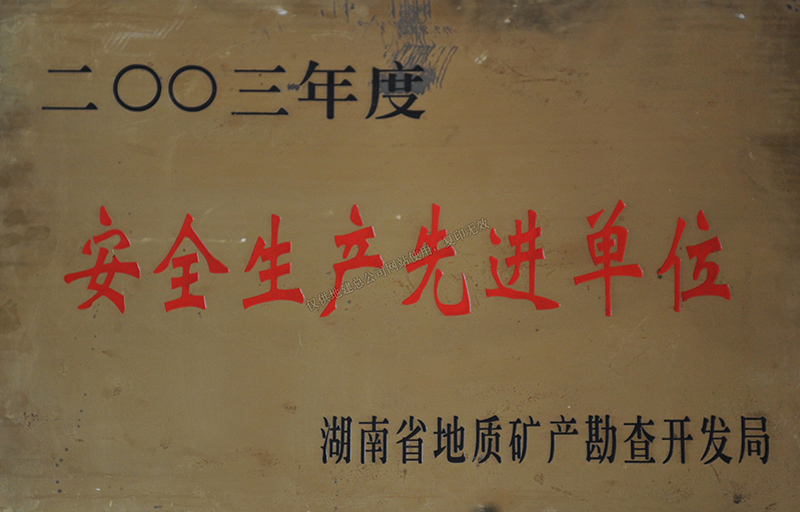 二〇〇三年度
安全生产先进单位
仅供地建总公司网站使用，复印无效
湖南省地质矿产勘查开发局